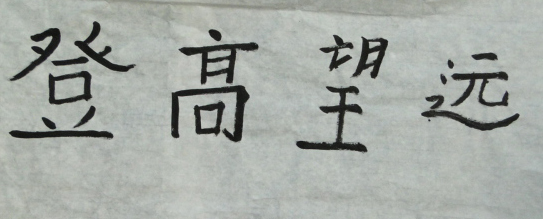 登高望远